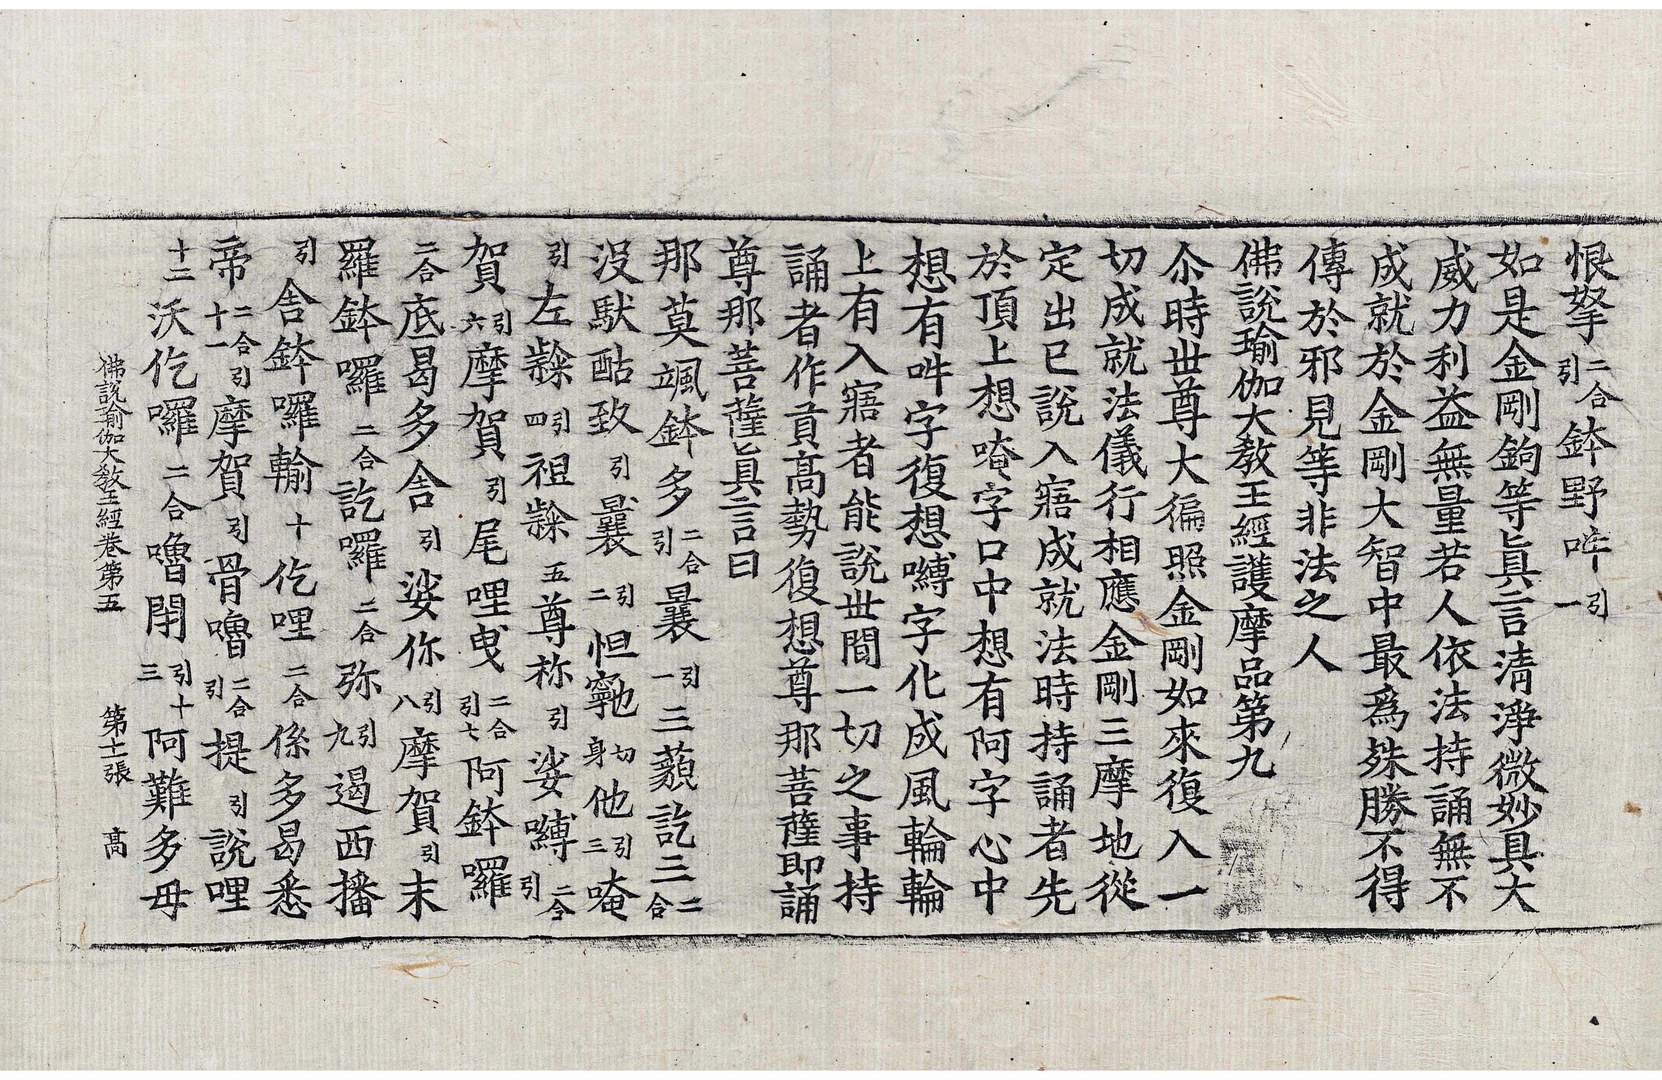 恨拏二合引鉢野吽引一
如是金剛鉤等眞言淸淨微妙具大
威力利益無量若人依法持誦無不
成就於金剛大智中最爲殊勝不得
傳於邪見等非法之人
佛說瑜伽大敎王經護摩品第九
尒時世尊大徧照金剛如來復入一
切成就法儀行相應金剛三摩地從
定出已說入寤成就法時持誦者先
於頂上想唵字口中想有阿字心中
想有吽字復想嚩字化成風輪輪
上有入寤者能說世間一切之事持
誦者作貢高勢復想尊那菩薩卽誦
尊那菩薩眞言曰
那莫颯鉢多二合引曩引一三藐訖三二合
沒馱酤致引曩引二怛寧也切身他引三唵
引左隷引四祖隷五尊祢引娑嚩二合引
賀引六摩賀引尾哩曳二合引七阿鉢囉
二合底曷多舍引娑你引八摩賀引末
羅鉢囉二合訖囉二合弥引九遏西播
引舍鉢囉輸十仡哩二合係多曷悉
帝二合引十一摩賀引骨嚕二合引提引說哩
十二沃仡囉二合嚕閉引十三阿難多母
佛說瑜伽大敎王經卷第五 第十二張 高